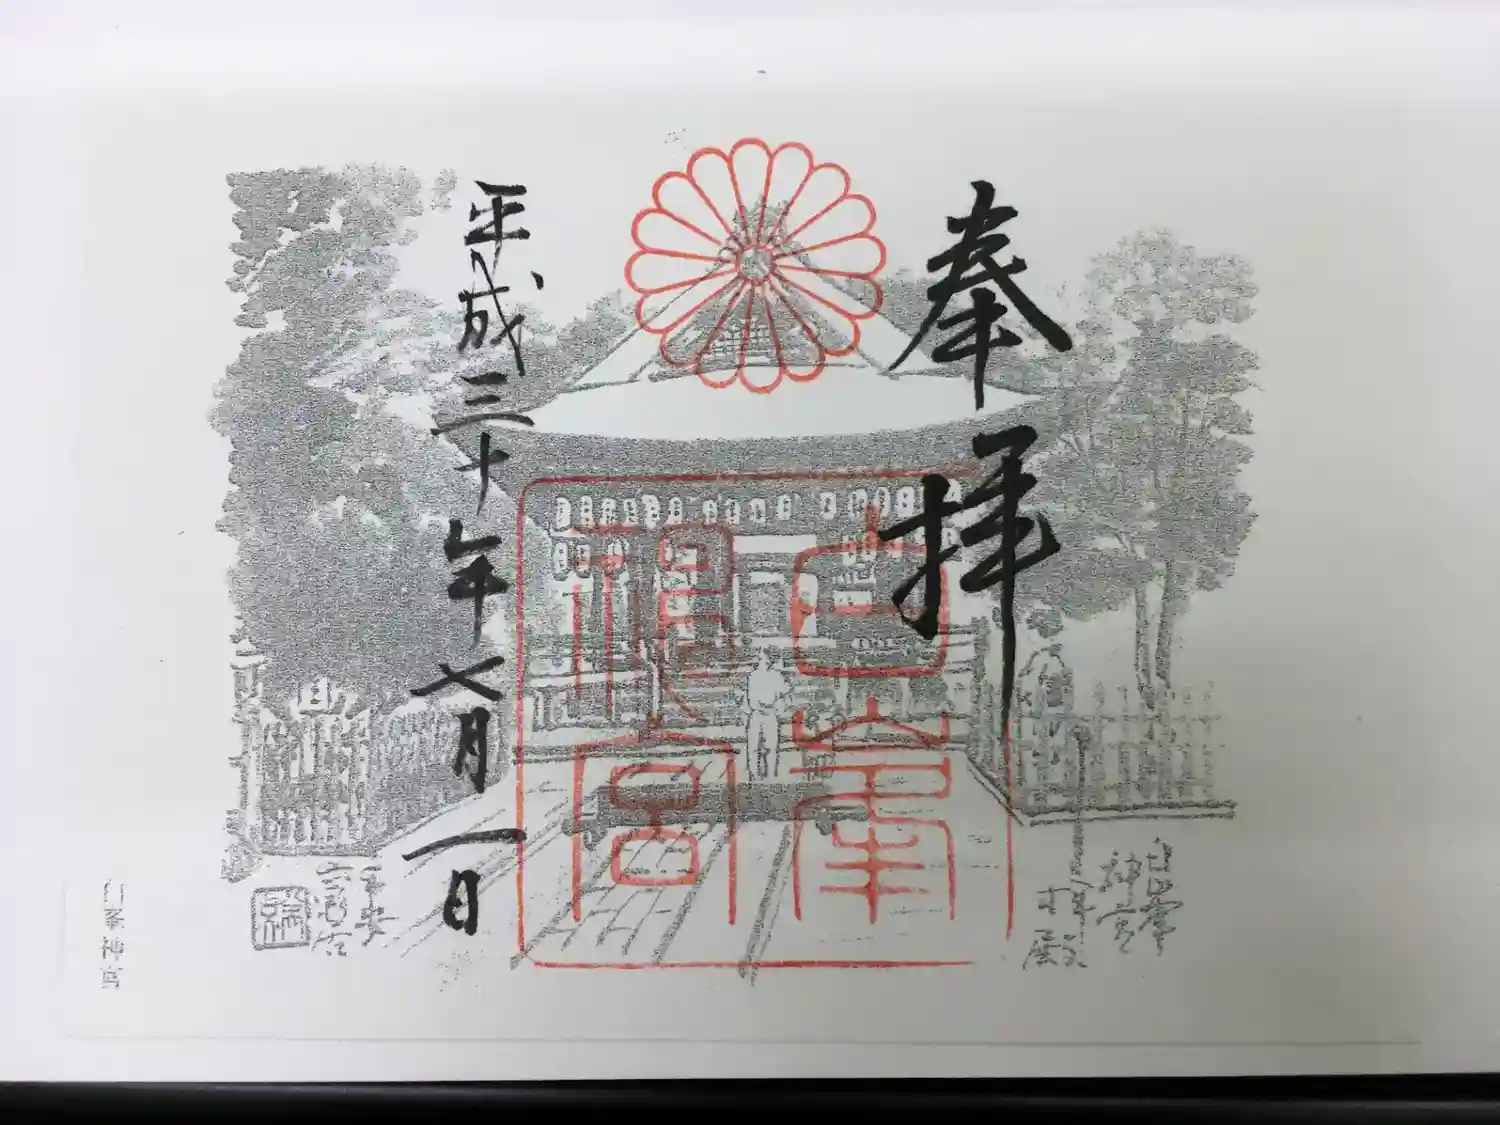 奉拝
白峯
神宮
平成三十年七月一日
白峯
神宮
平安
白峯神宮